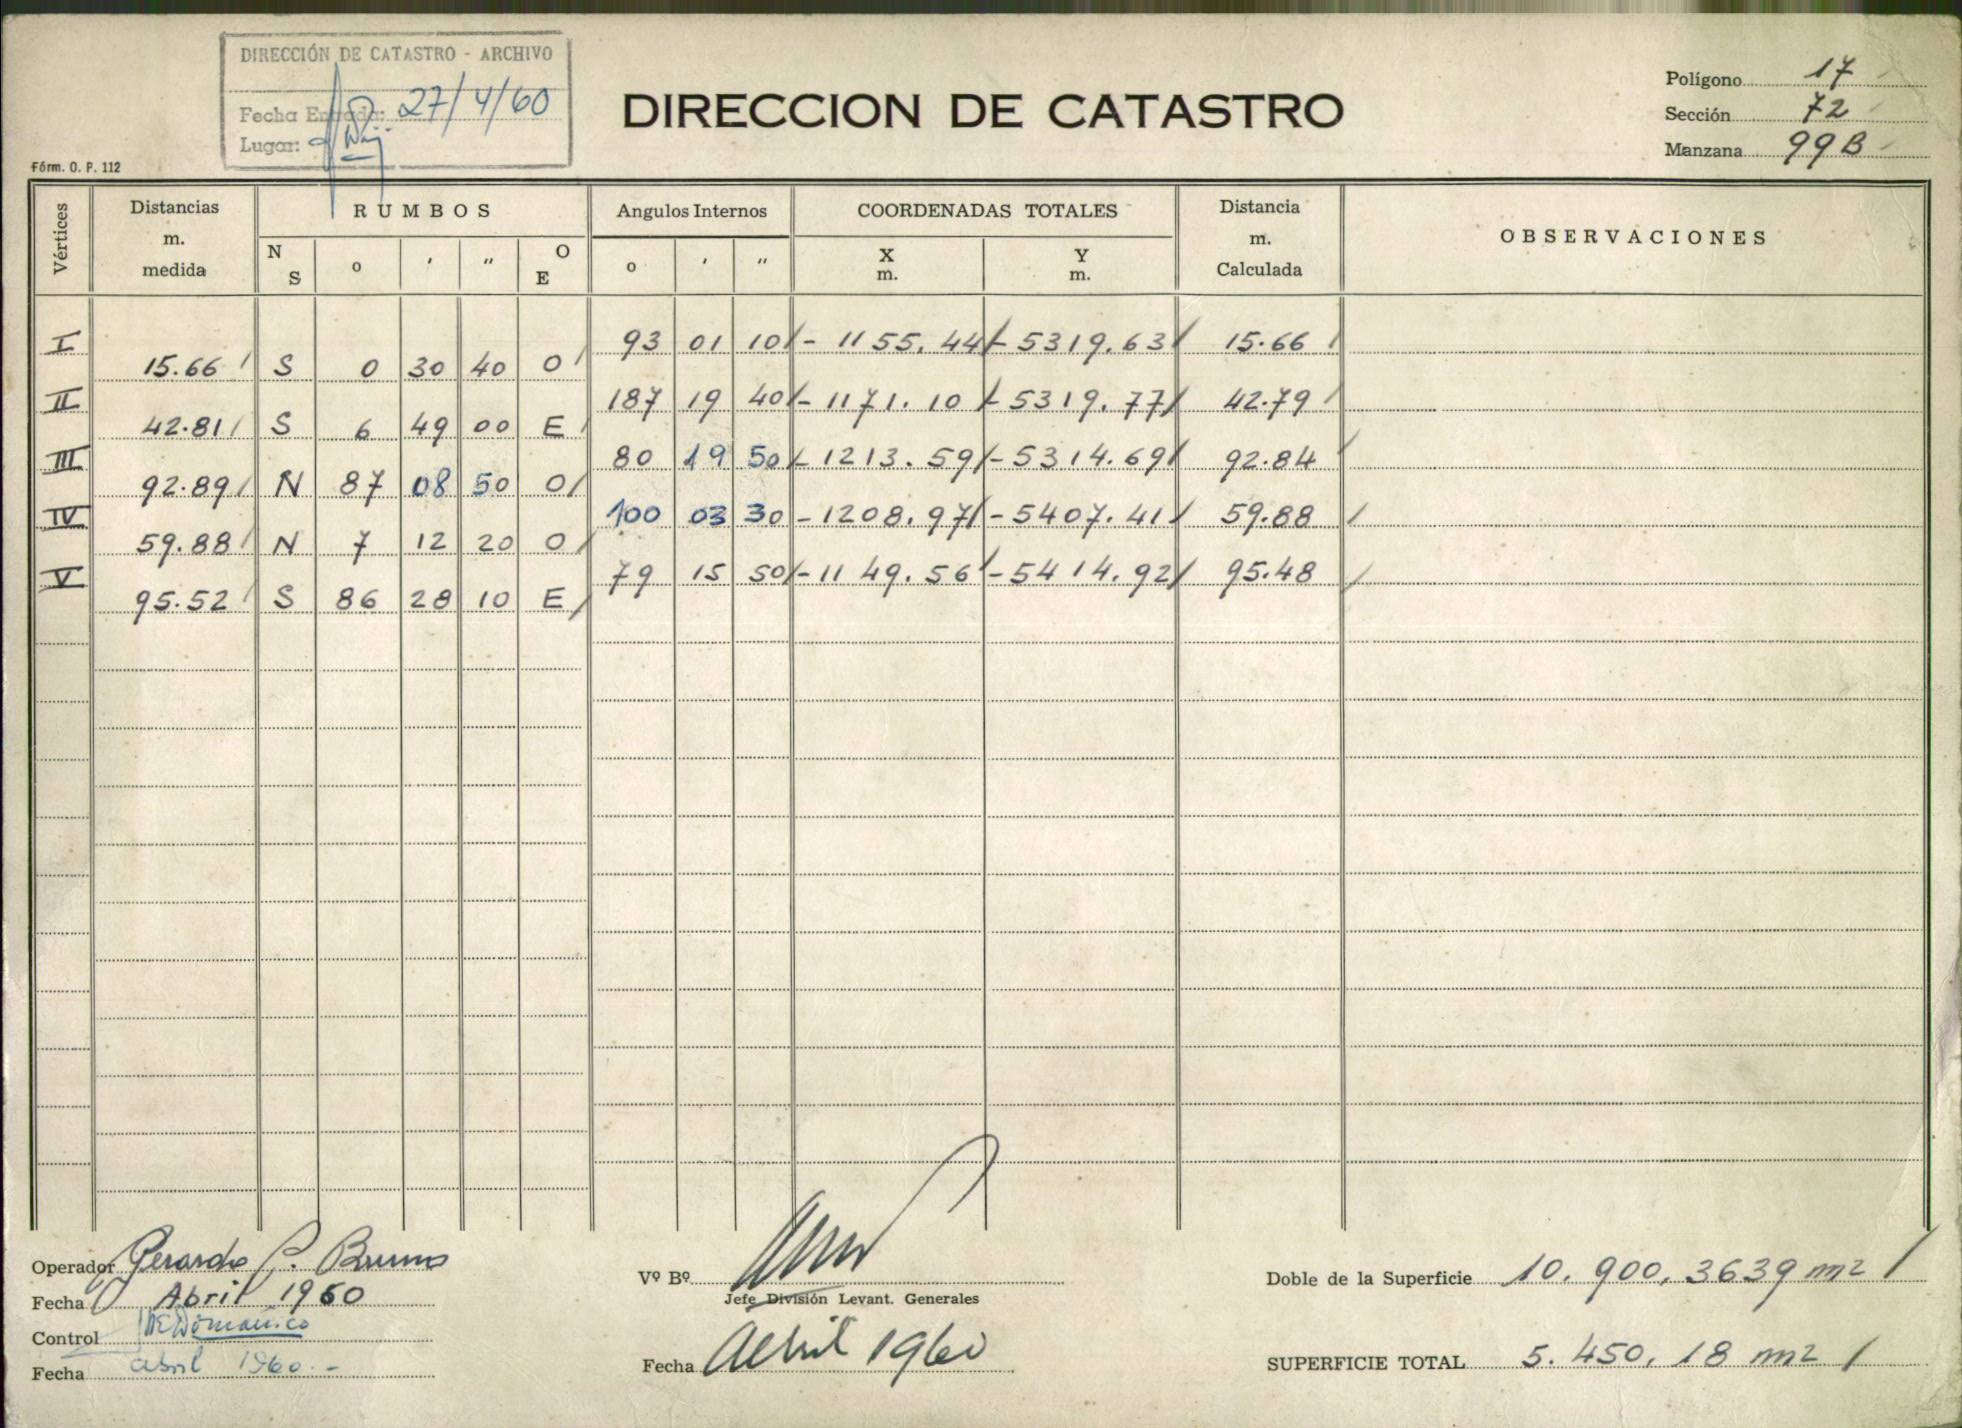 DIRECCIÓN DE CATASTRO - ARCHIVO
Fecha Entrada: 27/4/60
Lugar:
DIRECCION DE CATASTRO
Polígono 17
Sección 72
Manzana 99B
Fórm. O. P. 112
Vértices Distancias m. medida RUMBOS Angulos Internos COORDENADAS TOTALES Distancia m. Calculada OBSERVACIONES
N S o ' " O E o ' " X m. Y m.
I 93 01 10 - 1155.44 - 5319.63 15.66
15.66 S 0 30 40 O
II 187 19 40 - 1171.10 - 5319.77 42.79
42.81 S 6 49 00 E
III 80 19 50 - 1213.59 - 5314.69 92.84
92.89 N 87 08 50 O
IV 100 03 30 - 1208.97 - 5407.41 59.88
59.88 N 7 12 20 O
V 79 15 50 - 1149.56 - 5414.92 95.48
95.52 S 86 28 10 E
Operador Gerardo P. Bruno
Fecha Abril 1960
Control De Domenico
Fecha abril 1960.-
Vº Bº
Jefe División Levant. Generales
Fecha Abril 1960
Doble de la Superficie 10.900,3639 m2
SUPERFICIE TOTAL 5.450,18 m2